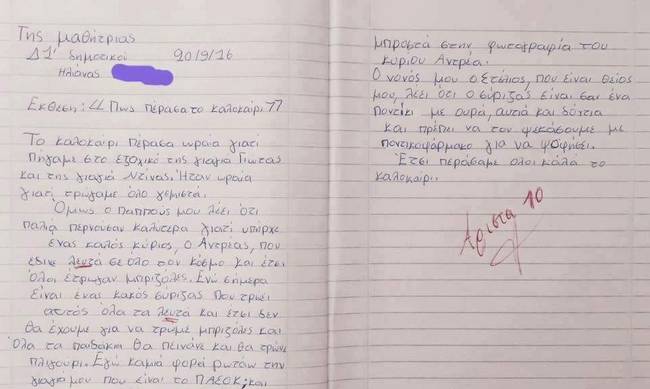 Της μαθήτριας
Δ1' δημοτικού 20/9/16
Ηλιάνας
Έκθεση: "Πως πέρασα το καλοκαίρι"
Το καλοκαίρι πέρασα ωραία γιατί
πήγαμε στο εξοχικό της γιαγιά Γιώτας
και της γιαγιά Ντίνας. Ήταν ωραία
γιατί τρώγαμε όλο γεμιστά.
Όμως ο παππούς μου λέει ότι
παλιά περνούσαν καλύτερα γιατί υπήρχε
ένας καλός κύριος, ο Αντρέας, που
έδινε λευτά σε όλο τον κόσμο και έτσι
όλοι έτρωγαν μπριζόλες. Ενώ σήμερα
είναι ένας κακός συρίζας που τρώει
αυτός όλα τα λευτά και έτσι δεν
θα έχουμε για να τρώμε μπριζόλες και
όλα τα παιδάκια θα πεινάνε και θα τρώνε
πλιγούρι. Εγώ καμιά φορεί ρωτάω την
γιαγιά μου που είναι το ΠΑΣΟΚ; και
μπροστά στην φωτογραφία του
κύριου Αντρέα.
Ο νονός μου ο Στέλιος, που είναι θείος
μου, λέει ότι ο σύριζας είναι σαν ένα
ποντίκι με ουρά, αυτιά και δόντια
και πρέπει να τον ψεκάσουμε με
ποντικοφάρμακο για να ψοφήσει.
Έτσι περάσαμε όλοι καλά το
καλοκαίρι.
Άριστα 10